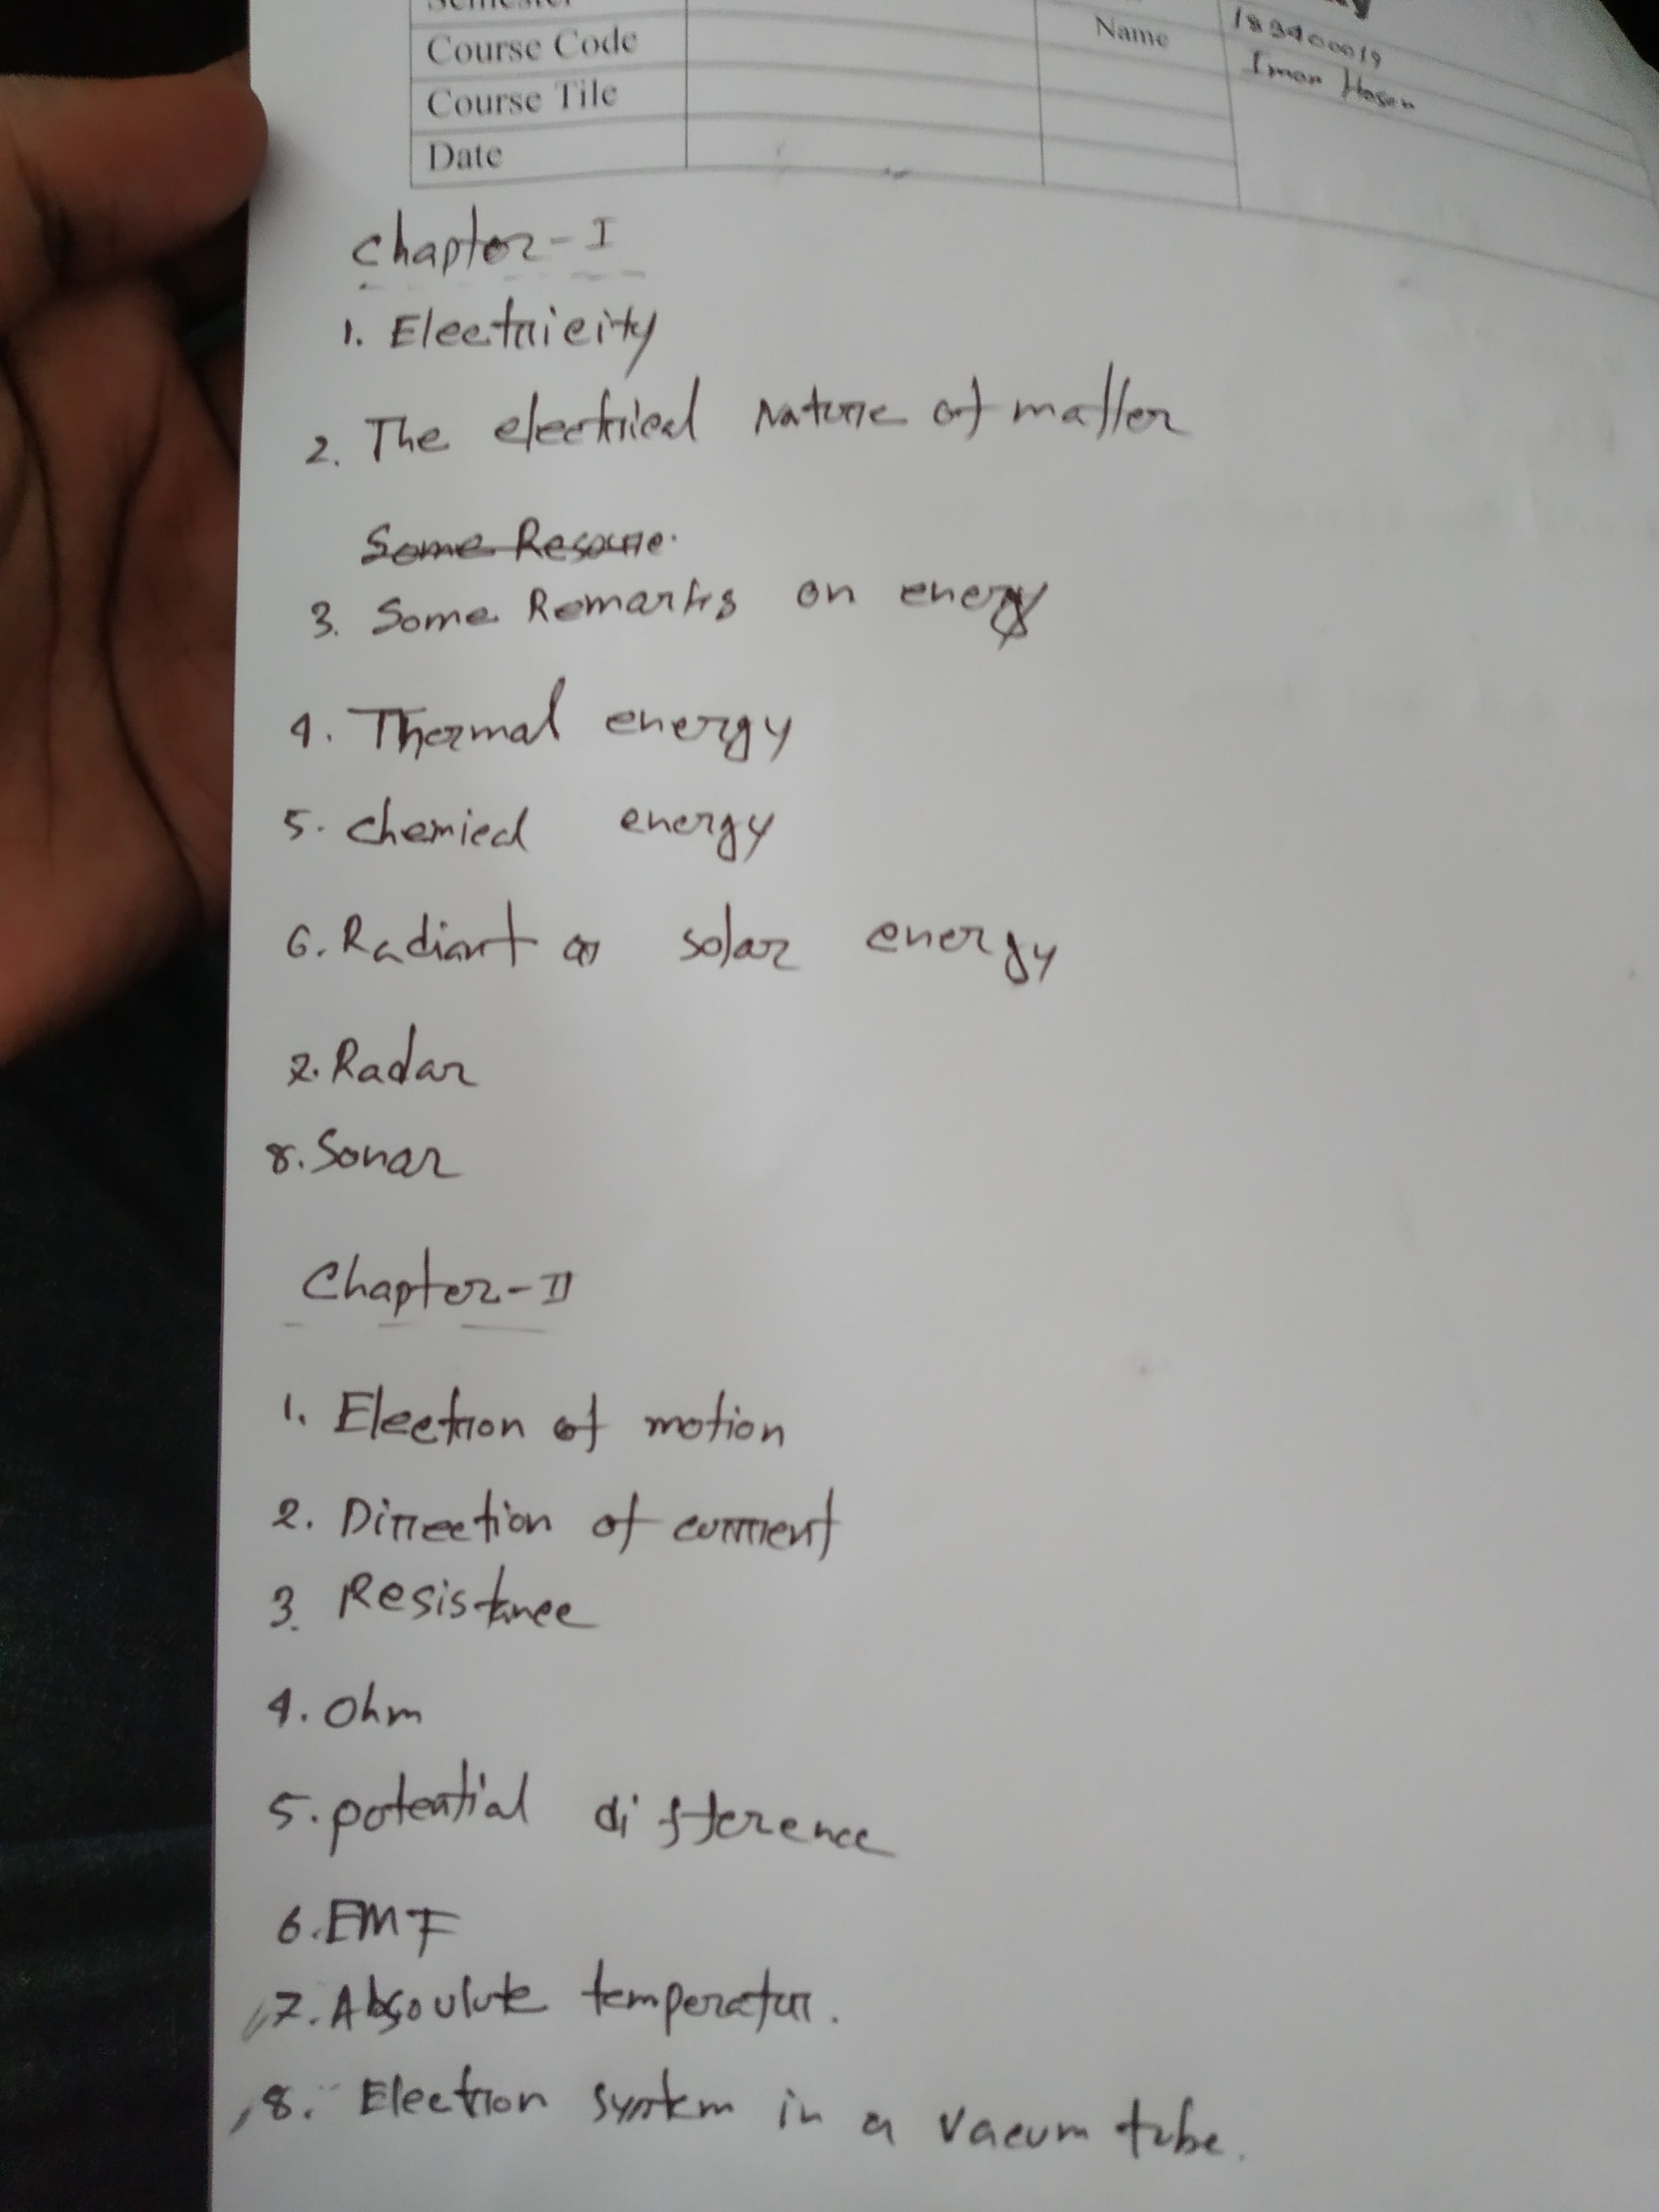 Semester
Course Code
Course Tile
Date
Name
183400019
Imon Hosen
Chapter-I
1. Electricity
2. The electrical Nature of matter
Some Resource.
3. Some Remarks on energy
4. Thermal energy
5. chemical energy
6. Radiant or solar energy
7. Radar
8. Sonar
Chapter-II
1. Electron of motion
2. Dirrection of current
3. Resistance
4. Ohm
5. potential difference
6. EMF
7. Absoulute temperatur.
8. Electron system in a vacum tube.